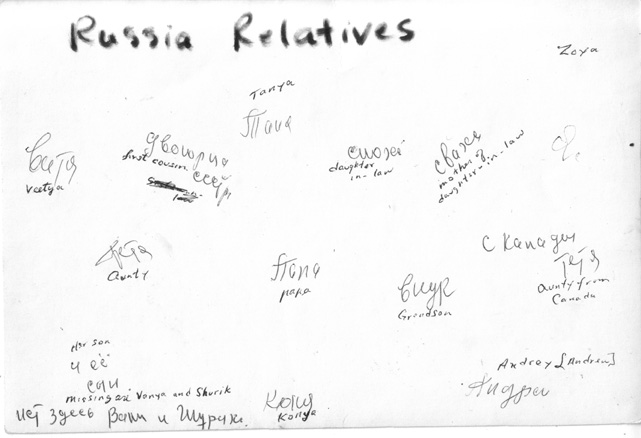 Russia Relatives
Zoya
Tanya
Таня
Витя
veetya
first cousin
сноха
daughter
in-law
сваха
mother of
daughter-in-law
Я.
тётя
Aunty
Папа
papa
внук
Grandson
С Канады
тётя
aunty from
Canada
Her son
и её
сын
missing are Vanya and Shurik
нет здесь Вани и Шурика.
Коня
Konya
Andrey [Andrew]
Андрей